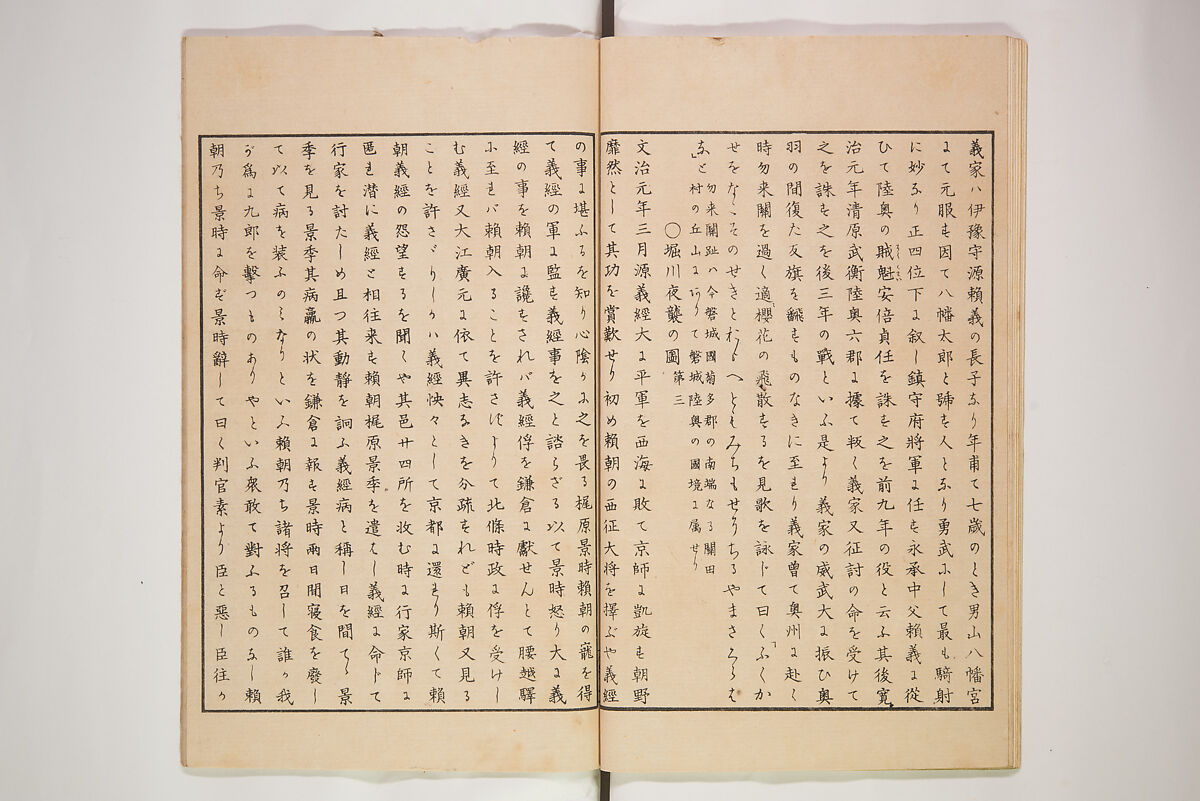 義家ハ伊豫守源賴義の長子なり年甫て七歳のとき男山八幡宮
にて元服す因て八幡太郎と號す人となり勇武にして最も騎射
に妙なり正四位下に叙し鎮守府將軍に任す永承中父賴義に從
ひて陸奥の賊魁安倍貞任を誅す之を前九年の役と云ふ其後寛
治元年清原武衡陸奥六郡に據て叛く義家又征討の命を受けて
之を誅す之を後三年の戰といふ是より義家の威武大に振ひ奥
羽の間復た反旗を飜すものなきに至れり義家曾て奥州に赴く
時勿来關を過く適櫻花の飛散するを見歌を詠じて曰く「ふくか
せをなこそのせきとおもへともみちもせにちるやまさくらか
な」と
勿来關趾ハ今磐城國菊多郡の南端なる關田
村の丘山にありて磐城陸奥の國境に属せり
〇堀川夜襲の圖 第三
文治元年三月源義經大に平軍を西海に敗て京師に凱旋す朝野
靡然として其功を賞歎せり初め賴朝の西征大将を擇ぶや義經
の事に堪ふるを知り心陰かに之を畏る梶原景時賴朝の寵を得
て義經の軍に監す義經事を之と諮らざる以て景時怒り大に義
經の事を賴朝に讒せされバ義經俘を鎌倉に獻せんとて腰越驛
に至れバ賴朝入ることを許さず北條時政に俘を受けし
む義經又大江廣元に依て異志なきを分疏すれども賴朝又見る
ことを許さゞりしかハ義經怏々として京都に還れり斯くて賴
朝義經の怨望するを聞くや其邑廿四所を收む時に行家京師に
匿れ潜に義經と相往来す賴朝梶原景季を遣はし義經に命じて
行家を討たしめ且つ其動靜を詗ふ義經病と稱し日を間てゝ景
季を見る景季其病羸の状を鎌倉に報す景時兩日間寝食を廢し
て以て病を装ふのみなりといふ賴朝乃ち諸将を召して誰か我
が爲に九郎を擊つものありやといふ衆敢て對ふるものなし賴
朝乃ち景時に命ず景時辭して曰く判官素より臣と惡し臣往か